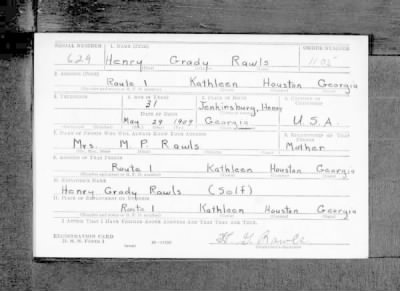 SERIAL NUMBER 1. NAME (Print) ORDER NUMBER
629 Henry Grady Rawls 1105
2. ADDRESS (Print)
Route 1 Kathleen Houston Georgia
3. TELEPHONE 4. AGE IN YEARS 5. PLACE OF BIRTH 6. COUNTRY OF CITIZENSHIP
31 Jenkinsburg, Henry
DATE OF BIRTH
May 29 1909 Georgia U.S.A.
7. NAME OF PERSON WHO WILL ALWAYS KNOW YOUR ADDRESS 8. RELATIONSHIP OF THAT PERSON
Mrs. M. P. Rawls Mother
9. ADDRESS OF THAT PERSON
Route 1 Kathleen Houston Georgia
10. EMPLOYER'S NAME
Henry Grady Rawls (Self)
11. PLACE OF EMPLOYMENT OR BUSINESS
Route 1 Kathleen Houston Georgia
I AFFIRM THAT I HAVE VERIFIED ABOVE ANSWERS AND THAT THEY ARE TRUE.
REGISTRATION CARD
D. S. S. FORM 1
H. G. Rawls